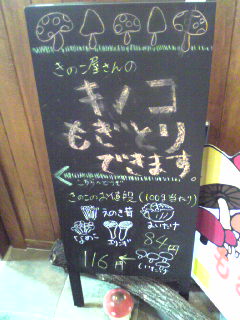 きのこ屋さんの
キノコ
もぎとり
できます。
こちらへどうぞ
きのこのお値段 (100g当たり)
えのき茸
まいたけ
なめこ
エリンギ
84円
116円
しいたけ